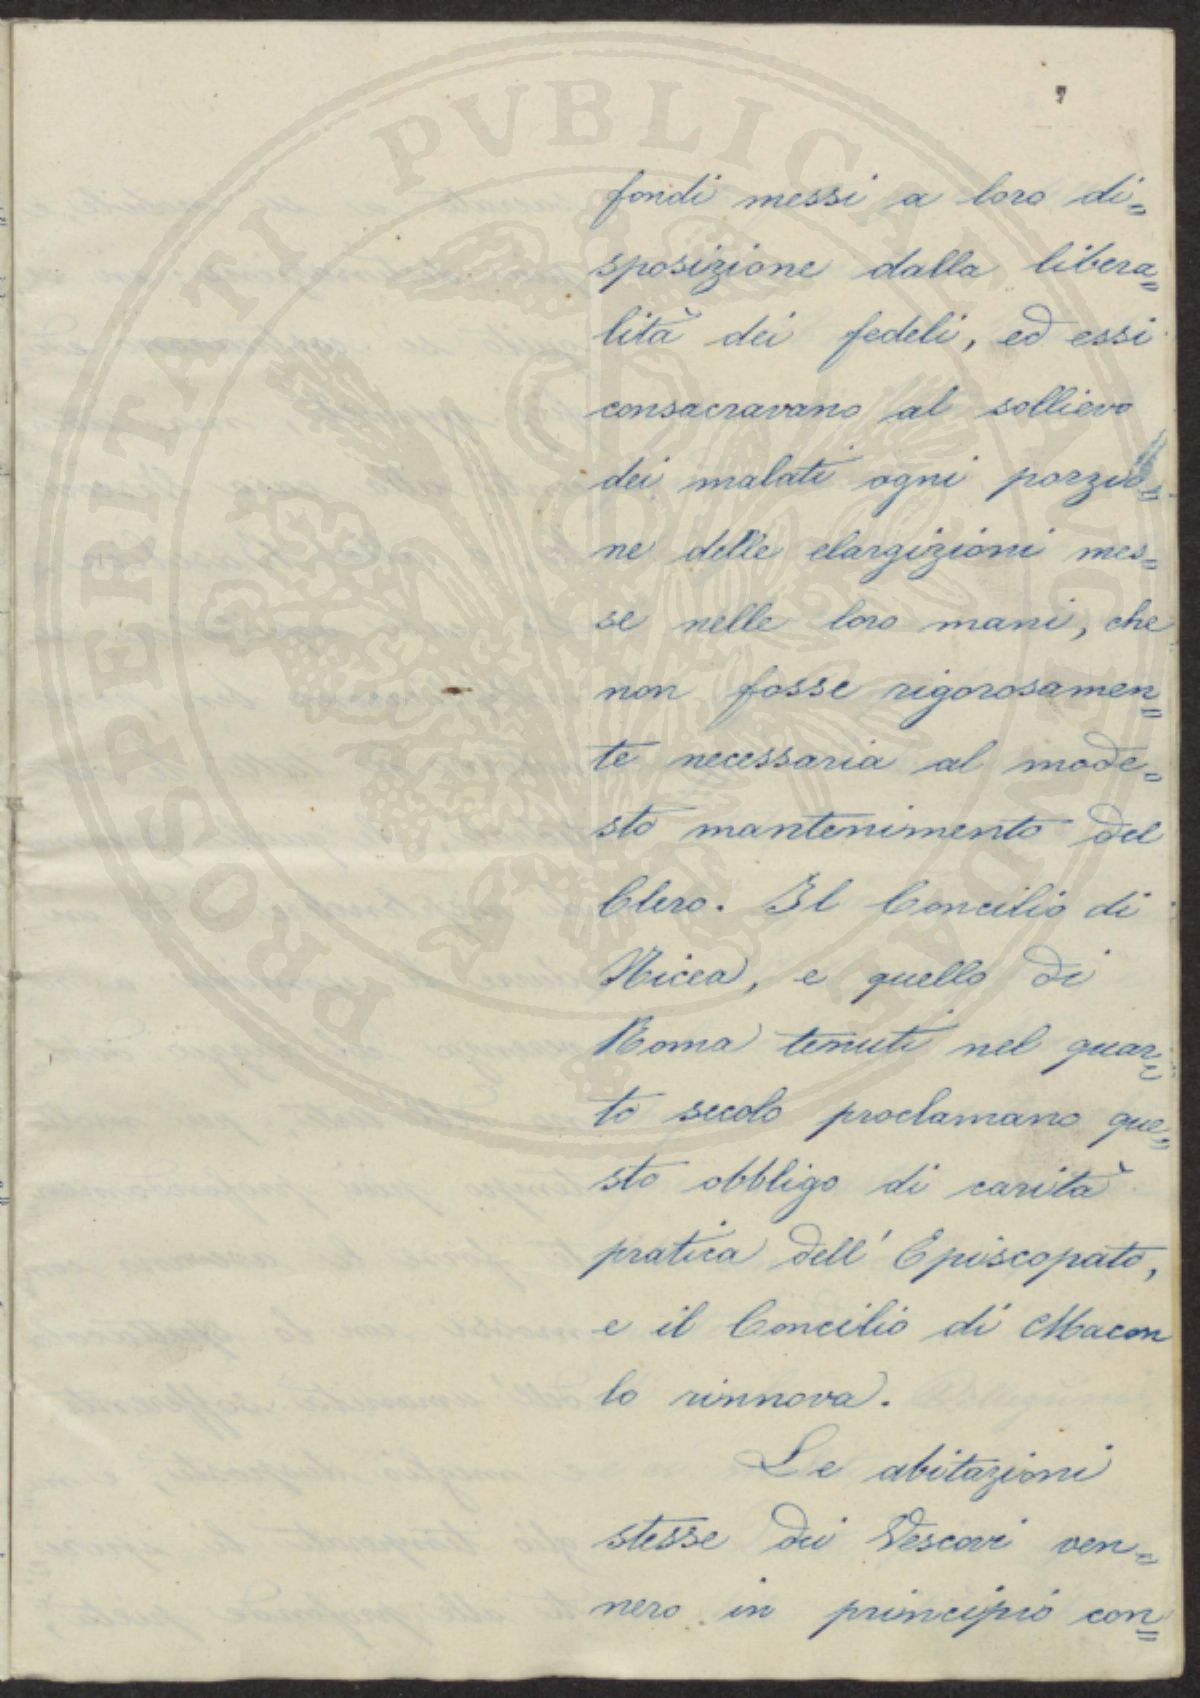 7
fondi messi a loro di=
sposizione dalla libera=
lità dei fedeli, ed essi
consacravano al sollievo
dei malati ogni porzio=
ne delle elargizioni mes=
se nelle loro mani, che
non fosse rigorosamen=
te necessaria al mode=
sto mantenimento del
Clero. Il Concilio di
Nicea, e quello di
Roma tenuti nel quar=
to secolo proclamano que=
sto obbligo di carità
pratica dell' Episcopato,
e il Concilio di Macon
lo rinnova.
Le abitazioni
stesse dei Vescovi ven=
nero in principio con=
PROSPERITATI PVBLICAE